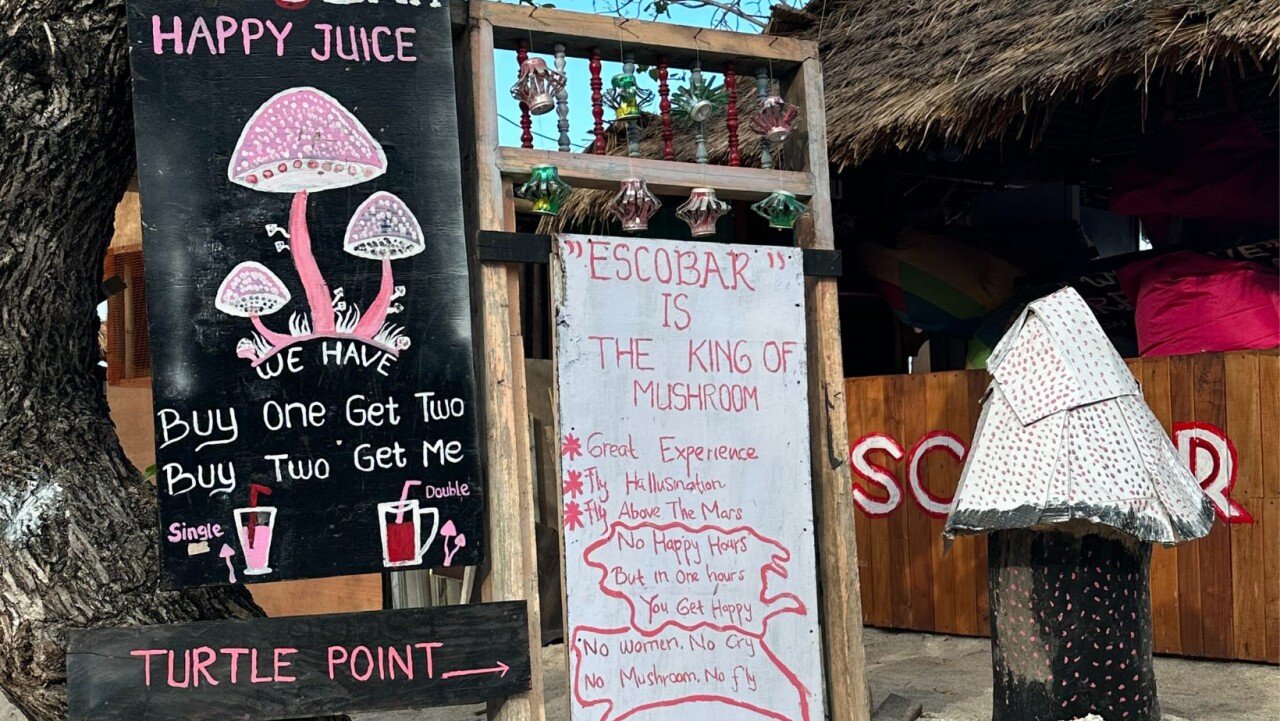 HAPPY JUICE
WE HAVE
Buy One Get Two
Buy Two Get Me
Single
Double
TURTLE POINT
"ESCOBAR"
IS
THE KING OF
MUSHROOM
Great Experience
Fly Hallusination
Fly Above The Mars
No Happy Hours
But in One hours
You Get Happy
No women, No Cry
No Mushroom, No fly